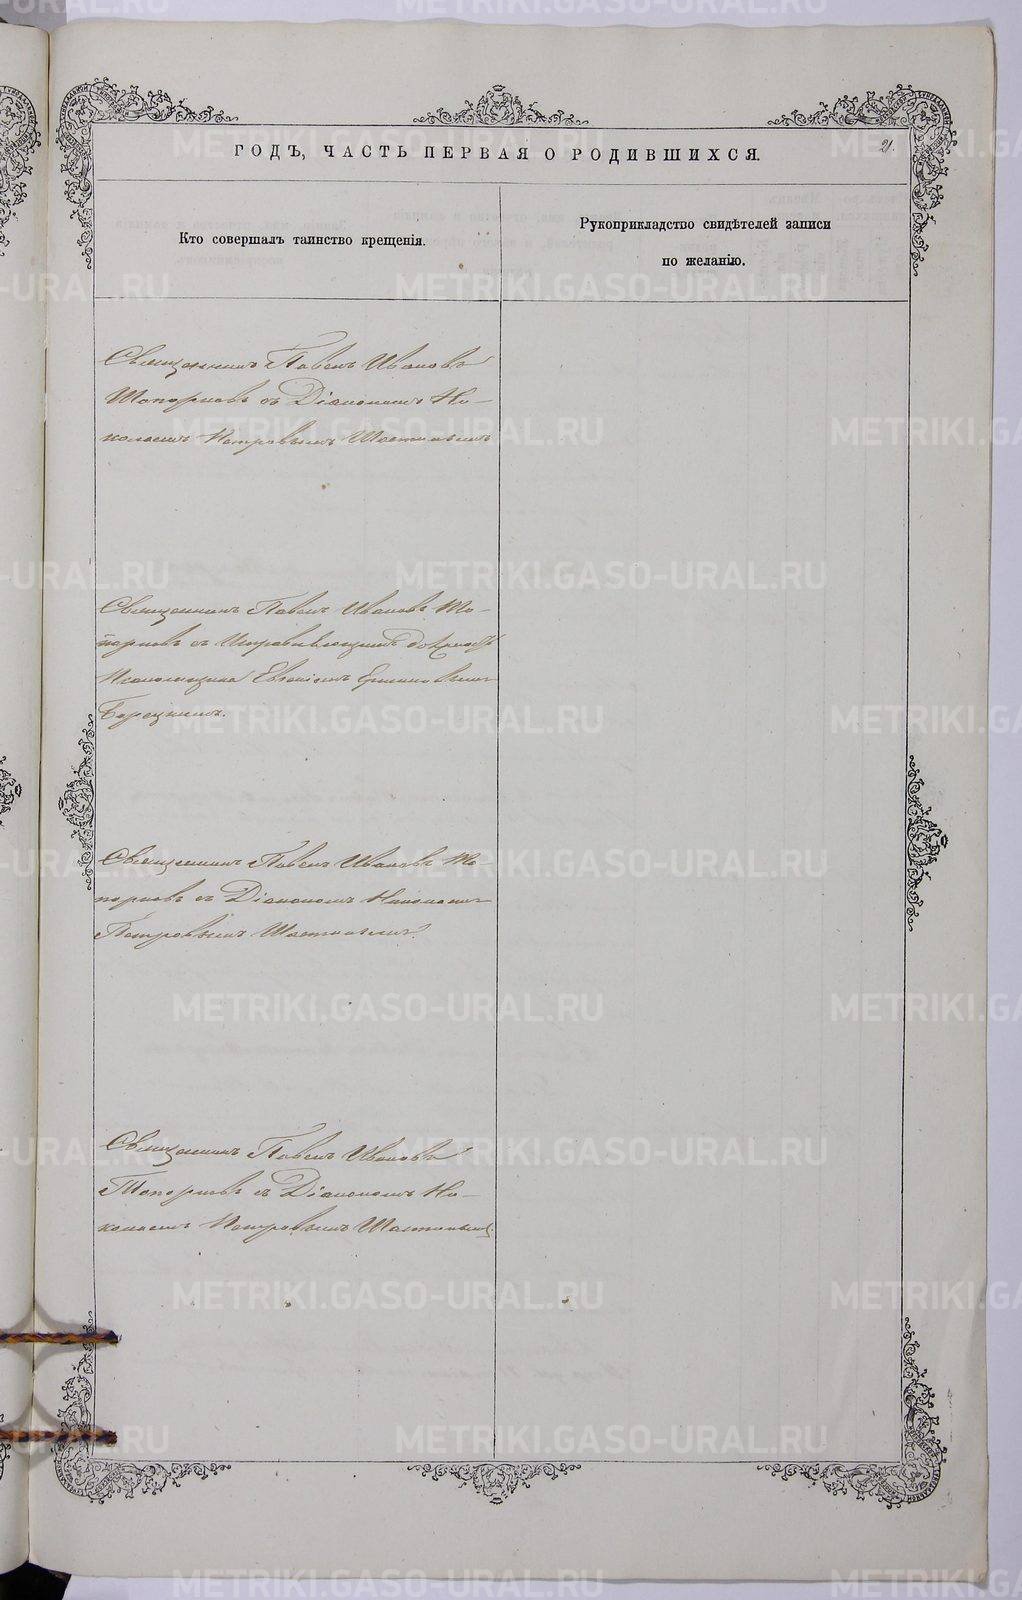 ГОДЪ, ЧАСТЬ ПЕРВАЯ О РОДИВШИХСЯ.
21.
Кто совершалъ таинство крещенія.
Рукоприкладство свидѣтелей записи
по желанію.
Священникъ Павелъ Ивановъ
Топорковъ съ Діакономъ Ни-
колаемъ Петровымъ
Священникъ Павелъ Ивановъ То-
порковъ съ Исправляющимъ должность
Псаломщика Евгеніемъ
Борецкимъ.
Священникъ Павелъ Ивановъ То-
порковъ съ Діакономъ Николаемъ
Петровымъ
Священникъ Павелъ Ивановъ
Топорковъ съ Діакономъ Ни-
колаемъ Петровымъ
METRIKI.GASO-URAL.RU